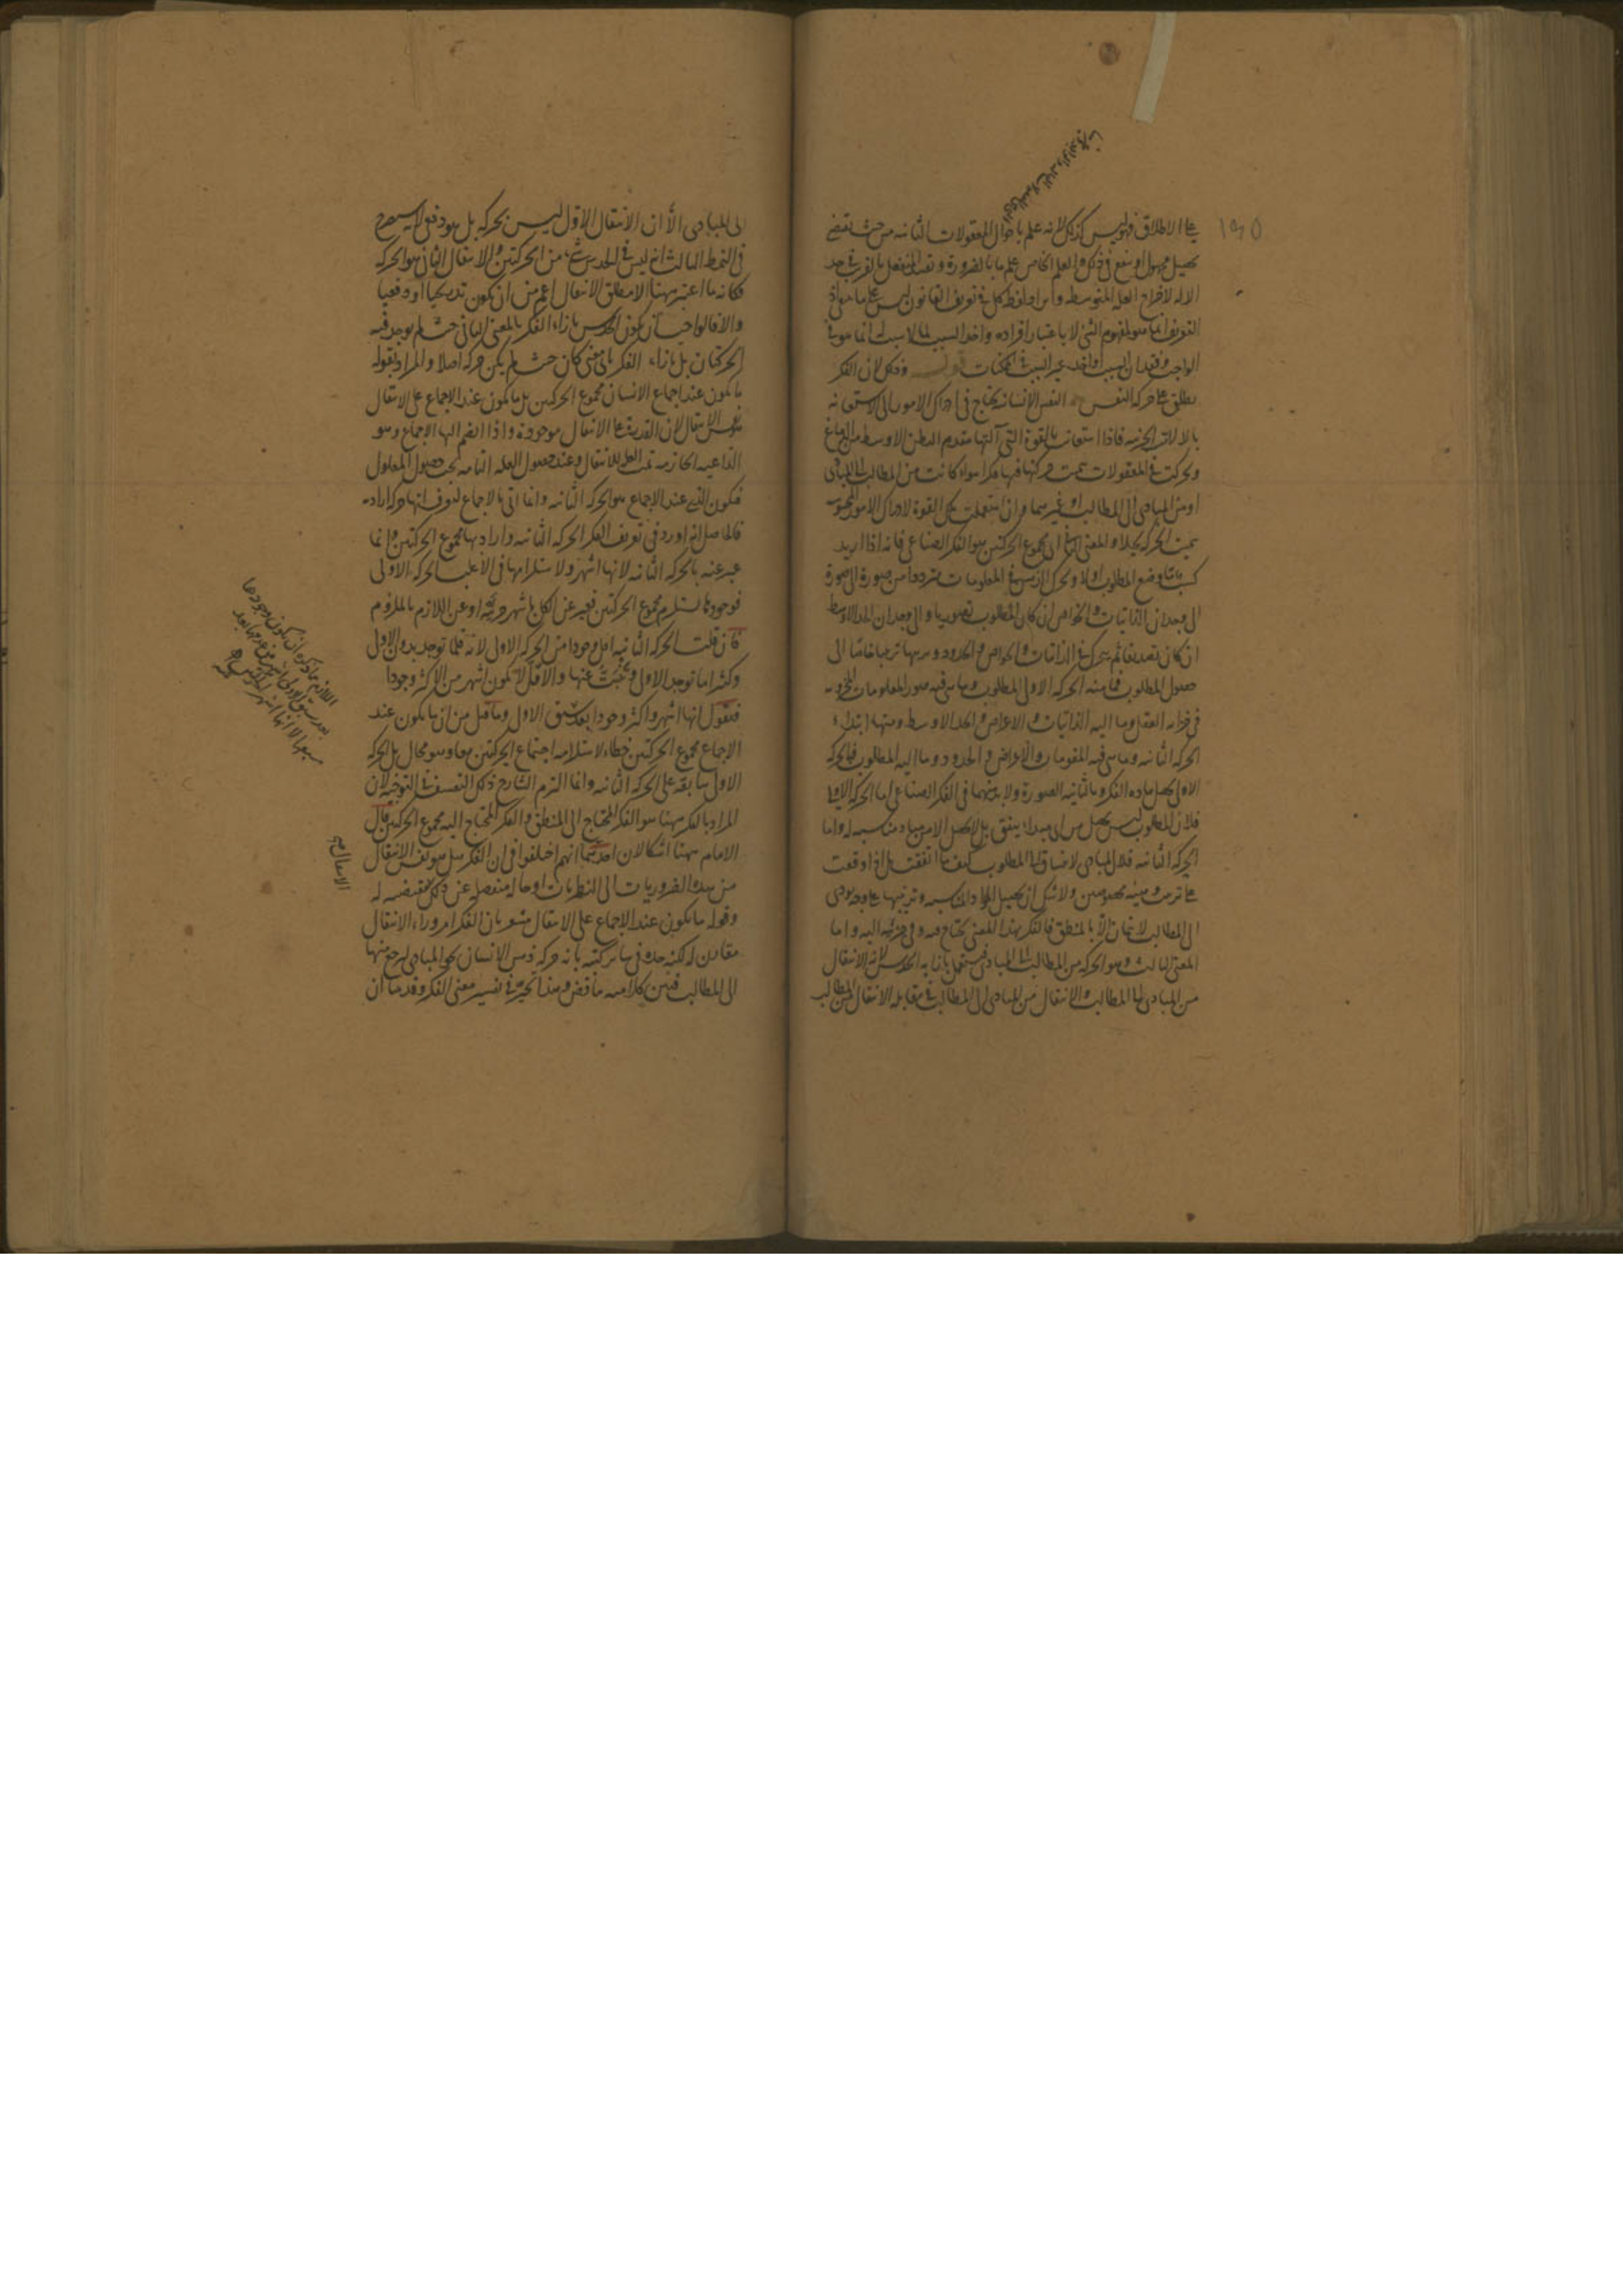 على الاطلاق وليس كذلك لانه علم باحوال المعقولات الثانيه من حيث تقتضى
تحصيل مجهول او ينفع فى ذلك والعلم الخاص علم ما بالضرورة وتقييد المنفعل بالقريب فى حد
الاله لاخراج العله المتوسطه وايراد لفظ كل فى تعريف القانون ليس على ما
التعريف انما هو لمفهوم الشئ لا باعتبار افراده
الواجب وفقدان السبب
وذلك لان الفكر
يطلق على حركه النفس النفس الانسانيه تحتاج فى ادراك الامور الى الاستعانه
بالالات الجزئيه فاذا استعانت بالقوة التى آلتها مقدم البطن الاوسط من الدماغ
وتحركت فى المعقولات سميت حركتها فيها فكرا سواء كانت من المطالب الى المبادى
او من المبادى الى المطالب او غيرهما وان استعملت تلك القوة لادراك الامور المحسوسه
سميت الحركه تخيلا والمعنى الثانى مجموع الحركتين وهو الفكر الصناعى فانه اذا اريد
كسب ما وضع المطلوب اولا وتحرك الذهن فى المعلومات مترددا من صورة الى صورة
الى وجدان الذاتيات والخواص ان كان المطلوب تصوريا والى وجدان الحد الاوسط
ان كان تصديقا ثم يتحرك فى الذاتيات والخواص والحدود ويرتبها ترتيبا خاصا الى
حصول المطلوب فما منه الحركه الاولى المطلوب وما هى فيه صور المعلومات المخزونه
فى خزانه العقل وما اليه الذاتيات والاعراض والحد الاوسط ومنها ابتداء
الحركه الثانيه وما هى فيه المقومات والاعراض والحدود وما اليه المطلوب فبالحركه
الاولى يحصل ماده الفكر وبالثانيه الصورة ولا بد منهما فى الفكر الصناعى اما الحركه الاولى
فلان المطلوب ليس يحصل من اى مبداء يتفق بل لا يحصل الا من مباد مناسبه له واما
الحركه الثانيه فلان المبادى لا تنساق الى المطلوب كيف ما اتفقت بل اذا وقعت
على ترتيب وهيئه مخصوصين ولا شك ان تحصيل المواد المناسبه وترتيبها على وجه يودى
الى المطالب لا يتمان الا بالمنطق فالفكر بهذا المعنى يحتاج فيه وفى جزئيه اليه واما
المعنى الثالث وهو الحركه من المطالب الى المبادى فيستعمل بازائه الحدس لانه الانتقال
من المبادى الى المطالب والانتقال من المبادى الى المطالب فى مقابله الانتقال من المطالب
الى المبادى الا ان الانتقال الاول ليس بحركه بل هو دفعى لا
فى النمط الثالث انه ليس فى الحدس شئ من الحركتين والانتقال الثانى هو الحركه
فكانه ما اعتبر ههنا الا مطلق الانتقال اعم من ان يكون تدريجيا او دفعيا
والا فالواجب ان يكون الحدس بازاء الفكر بالمعنى الثانى حيث لم يوجد فيه
الحركتان بل بازاء الفكر باى معنى كان حيث لم يكن حركه اصلا والمراد بقوله
ما يكون عند اجماع الانسان مجموع الحركتين بل ما يكون عند الاجماع على الانتقال
هو نفس الانتقال لان القدره على الانتقال موجودة واذا انضم اليها الاجماع وهو
الداعيه الجازمه تمت العله للانتقال وعند حصول العله التامه يجب حصول المعلول
فيكون الذى عند الاجماع هو الحركه الثانيه وانما اتى بالاجماع ليعرف انها حركه اراديه
فالحاصل انه اورد فى تعريف الفكر الحركه الثانيه واراد بها مجموع الحركتين وانما
عبر عنه بالحركه الثانيه لانها اشهر ولاستلزامها فى الاغلب الحركه الاولى
فوجودها يستلزم مجموع الحركتين فعبر عن الكل باشهر جزئيه او عن اللازم بالملزوم
فان قلت الحركه الثانيه اقل وجودا من الحركه الاولى لانه قلما توجد بدون الاولى
وكثيرا ما توجد الاولى عنها والاقل لا يكون اشهر من الاكثر وجودا
فنقول انها اشهر واكثر وجودا بعد سبق الاولى وما قيل من ان ما يكون عند
الاجماع مجموع الحركتين خطاء لاستلزامه اجتماع الحركتين معا وهو محال بل الحركه
الاولى سابقه على الحركه الثانيه وانما التزم الشارح ذلك التعسف فى التوجيه لان
المراد بالفكر ههنا هو الفكر المحتاج الى المنطق والفكر المحتاج اليه مجموع الحركتين قال
الامام ههنا اشكالان احدهما انهم اختلفوا فى ان الفكر هل هو نفس الانتقال
من هذه الضروريات الى النظريات او حاله منفصله عن ذلك مقتضيه له
وقوله ما يكون عند الاجماع على الانتقال مشعر بان الفكر امر وراء الانتقال
مقارن له لكنه حده فى سائر كتبه بانه حركه ذهن الانسان نحو المبادى ليرجع منها
الى المطالب فبين كلاميه تناقض وهذا تحير فى تفسير معنى الفكر وقدمنا ان